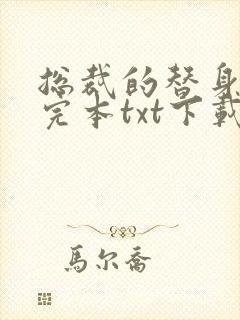 总裁的替身
完本txt下载
馬尔喬